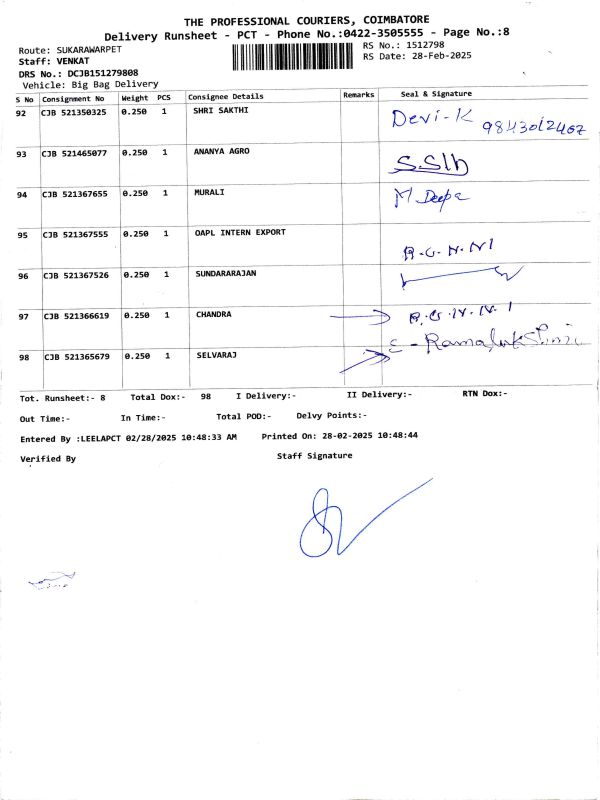 THE PROFESSIONAL COURIERS, COIMBATORE
Delivery Runsheet - PCT - Phone No.:0422-3505555 - Page No.:8
Route: SUKARAWARPET
RS No.: 1512798
Staff: VENKAT
RS Date: 28-Feb-2025
DRS No.: DCJB151279808
Vehicle: Big Bag Delivery
S No Consignment No Weight PCS Consignee Details Remarks Seal & Signature
92 CJB 521350325 0.250 1 SHRI SAKTHI Devi-K 9843012467
93 CJB 521465077 0.250 1 ANANYA AGRO
94 CJB 521367655 0.250 1 MURALI M Deepa
95 CJB 521367555 0.250 1 OAPL INTERN EXPORT
96 CJB 521367526 0.250 1 SUNDARARAJAN
97 CJB 521366619 0.250 1 CHANDRA
98 CJB 521365679 0.250 1 SELVARAJ
Tot. Runsheet:- 8 Total Dox:- 98 I Delivery:- II Delivery:- RTN Dox:-
Out Time:- In Time:- Total POD:- Delvy Points:-
Entered By :LEELAPCT 02/28/2025 10:48:33 AM Printed On: 28-02-2025 10:48:44
Verified By Staff Signature